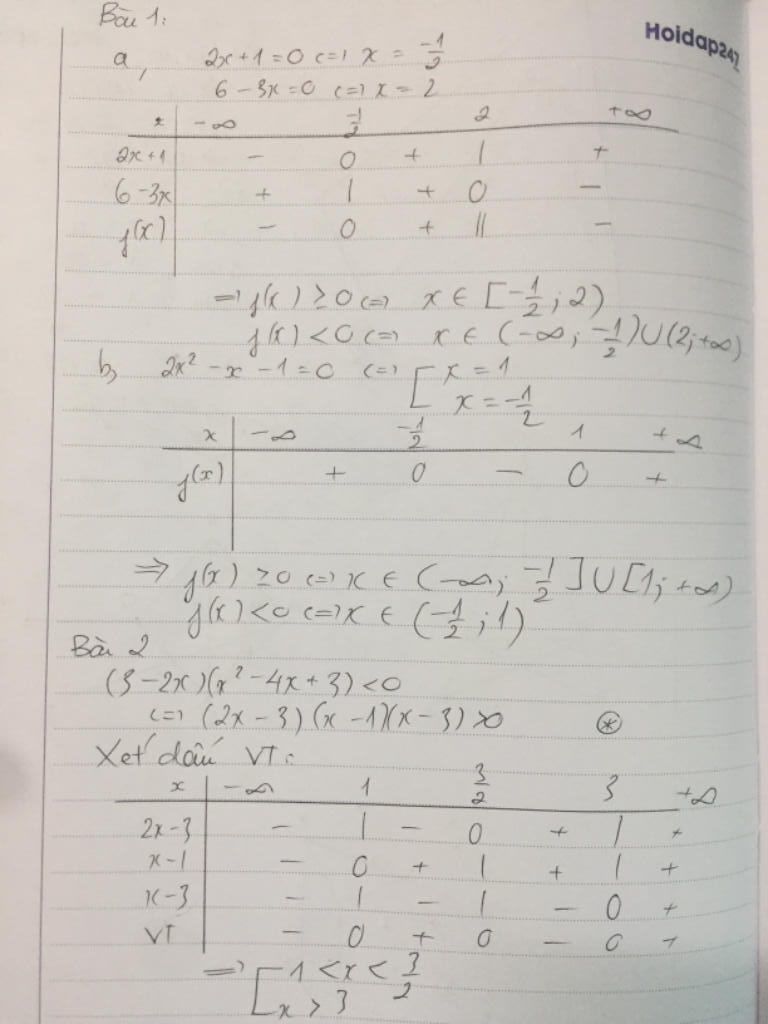 Bài 1:
Hoidap247
a, 2x+1=0 <=> x = -1/2
6-3x=0 <=> x = 2
x -∞ -1/2 2 +∞
2x+1 - 0 + | +
6-3x + | + 0 -
f(x) - 0 + || -
=> f(x) ≥ 0 <=> x ∈ [-1/2; 2)
f(x) < 0 <=> x ∈ (-∞; -1/2) ∪ (2; +∞)
b, 2x² - x - 1 = 0 <=> [ x = 1
x = -1/2
x -∞ -1/2 1 +∞
f(x) + 0 - 0 +
=> f(x) ≥ 0 <=> x ∈ (-∞; -1/2] ∪ [1; +∞)
f(x) < 0 <=> x ∈ (-1/2; 1)
Bài 2
(3-2x)(x²-4x+3) < 0
<=> (2x-3)(x-1)(x-3) > 0 (*)
Xét dấu VT:
x -∞ 1 3/2 3 +∞
2x-3 - | - 0 + | +
x-1 - 0 + | + | +
x-3 - | - | - 0 +
VT - 0 + 0 - 0 +
=> [ 1 < x < 3/2
x > 3